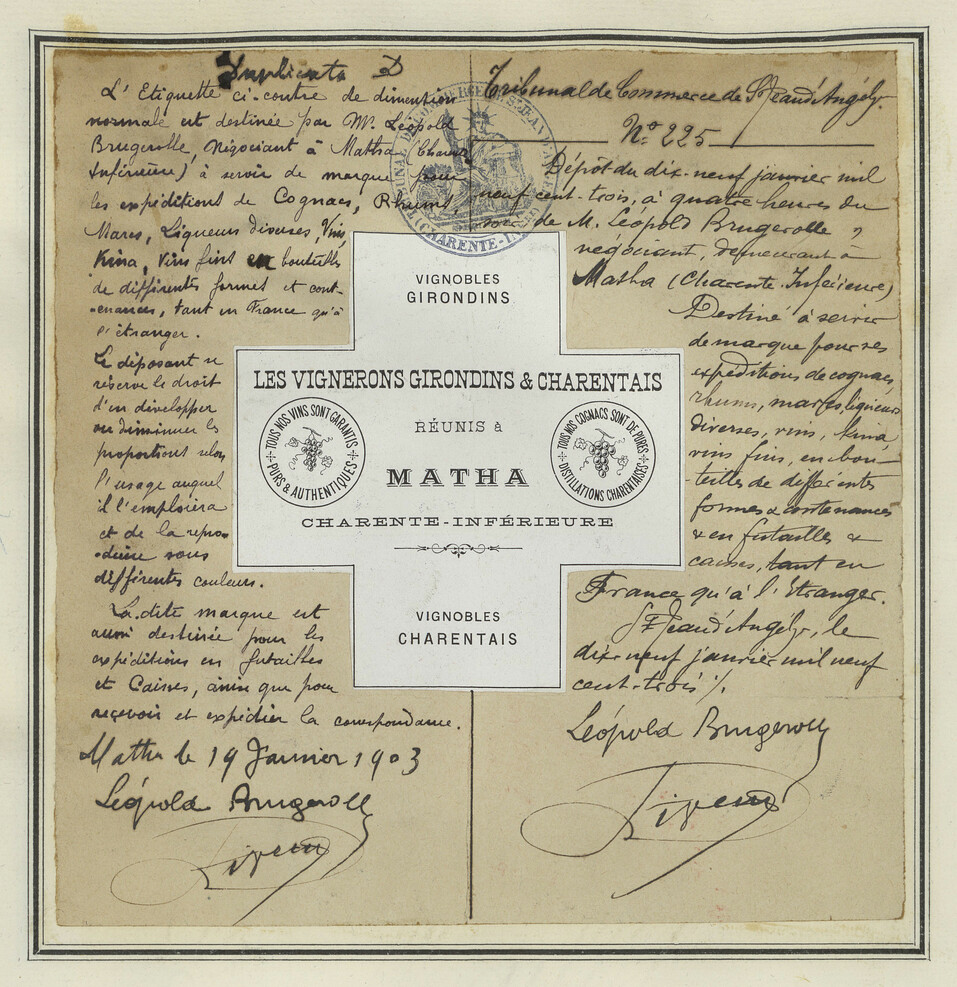 Duplicata D
L'Etiquette ci-contre de dimention
normale est destinée par Mr. Léopold
Brugerolle, Négociant à Matha (Charente
Inférieure) à servir de marque pour
les expéditions de Cognacs, Rhums,
Marcs, Liqueurs Diverses, Vins,
Kina, Vins fins en bouteilles
de différentes formes et cont-
-enances, tant en France qu'à
l'étranger.
Le déposant se
réserve le droit
d'en développer
ou diminuer les
proportions selon
l'usage auquel
il l'emploiera
et de la repro-
-duire sous
différentes couleurs.
La dite marque est
aussi destinée pour les
expéditions en futailles
et Caisses, ainsi que pour
recevoir et expédier la correspondance.
Matha le 19 Janvier 1903
Léopold Brugerolle
VIGNOBLES
GIRONDINS
LES VIGNERONS GIRONDINS & CHARENTAIS
TOUS NOS VINS SONT GARANTIS
PURS & AUTHENTIQUES
RÉUNIS à
MATHA
TOUS NOS COGNACS SONT DE PURES
DISTILLATIONS CHARENTAISES
CHARENTE-INFÉRIEURE
VIGNOBLES
CHARENTAIS
Tribunal de Commerce de St Jean d'Angély.
No 225
Dépôt du dix-neuf janvier mil
neuf cent-trois, à quatre heures du
soir de M. Léopold Brugerolle,
négociant, demeurant à
Matha (Charente-Inférieure)
Destiné à servir
de marque pour ses
expéditions de cognacs,
rhums, marcs, liqueurs
diverses, vins, kina,
vins fins, en bou-
teilles de différentes
formes & contenances
& en futailles &
caisses, tant en
France qu'à l'Etranger.
St Jean d'Angély, le
dix-neuf janvier mil neuf
cent-trois ./.
Léopold Brugerolle
TRIBUNAL DE COMMERCE DE ST JEAN D'A
(CHARENTE-INFRE)